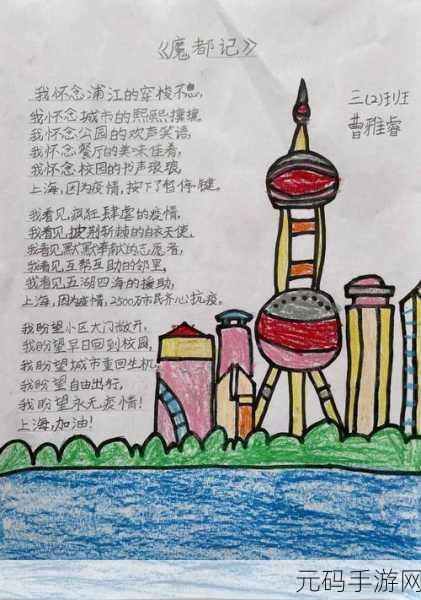 《魔都记》
三(2)班
曹雅睿
我怀念浦江的穿梭不息,
我怀念城市的熙熙攘攘,
我怀念公园的欢声笑语,
我怀念餐厅的美味佳肴,
我怀念校园的书声琅琅,
上海,因为疫情,按下了暂停键。
我看见,疯狂肆虐的疫情,
我看见,披荆斩棘的白衣天使,
我看见默默奉献的志愿者,
我看见互帮互助的邻里,
我看见五湖四海的援助,
上海,因为疫情,2500万市民齐心抗疫。
我盼望小区大门敞开,
我盼望早日回到校园,
我盼望城市重回生机,
我盼望自由出行,
我盼望永无疫情!
上海,加油!
元码手游网